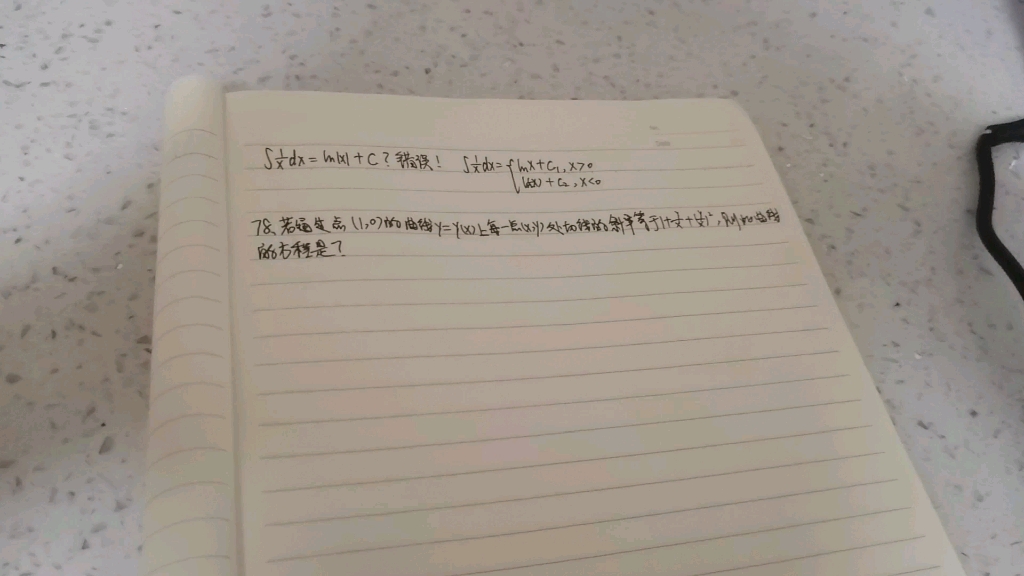 ∫1/x dx = ln|x| + C？错误！ ∫1/x dx = { lnx + C₁, x>0
ln(-x) + C₂, x<0
78. 若 点 (1,0) 的曲线 y=y(x) 上每一点 (x,y) 处切线的斜率等于 1+ , 则 曲线
的方程是？